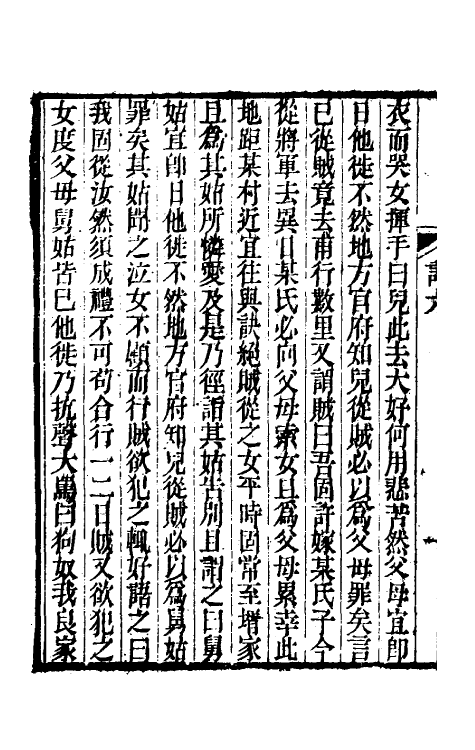 衣而哭女揮手曰兒此去大好何用悲苦然父母宜卽
日他徙不然地方官府知兒從賊必以爲父母罪矣言
已從賊竟去甫行數里又謂賊曰吾固許嫁某氏子今
從將軍去異日某氏必向父母索女且爲父母累幸此
地距某村近宜往與訣絕賊從之女平時固常至壻家
且爲其姑所憐愛及是乃徑詣其姑告別且謂之曰舅
姑宜卽日他徙不然地方官府知兒從賊必以爲舅姑
罪矣其姑聞之泣女不顧而行賊欲犯之輒好諸之曰
我固從汝然須成禮不可苟合行一二日賊又欲犯之
女度父母舅姑皆已他徙乃抗聲大罵曰狗奴我良家